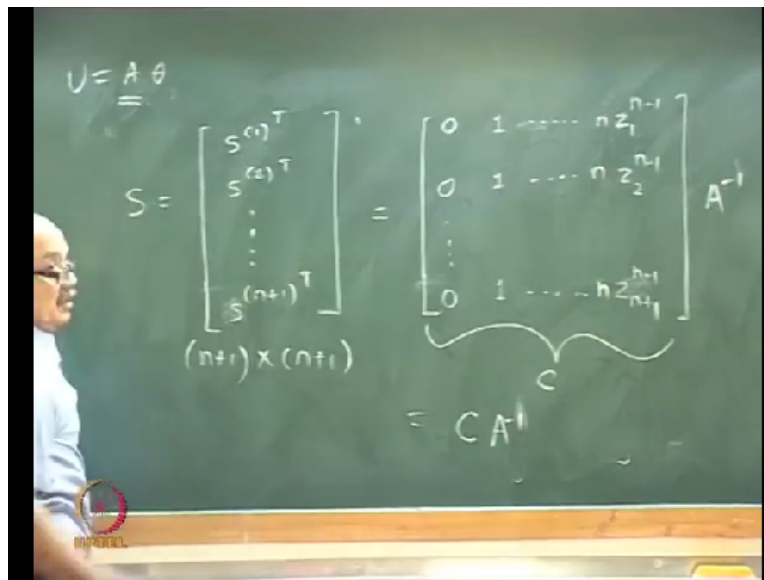 U = A θ
S = [ S^(1)^T S^(2)^T ⋮ S^(n+1)^T ] = [ 0 1 ...... n z_1^{n-1} ; 0 1 .... n z_2^{n-1} ; ⋮ ; 0 1 ...... n z_{n+1}^{n-1} ] A^{-1}
(n+1) × (n+1)
C
= C A^{-1}
NPTEL